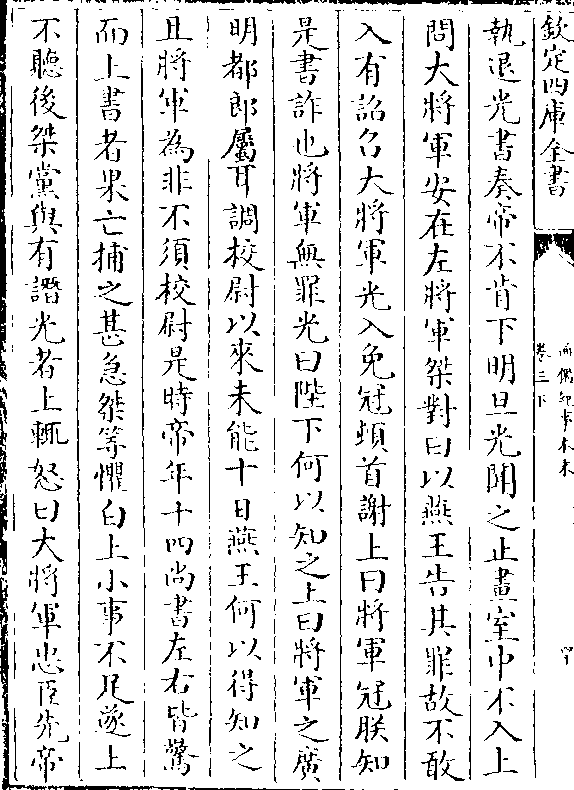 欽定四庫全書
執退光書奏帝不肯下明旦光聞之止畫室中不入上
問大將軍安在左將軍桀對曰以燕王告其罪故不敢
入有詔召大將軍光入免冠頓首謝上曰將軍冠朕知
是書詐也將軍無罪光曰陛下何以知之上曰將軍之廣
明都郎屬耳調校尉以來未能十日燕王何以得知之
且將軍為非不須校尉是時帝年十四尚書左右皆驚
而上書者果亡捕之甚急桀等懼白上小事不足遂上
不聽後桀黨與有譖光者上輒怒曰大將軍忠臣先帝
卷三下